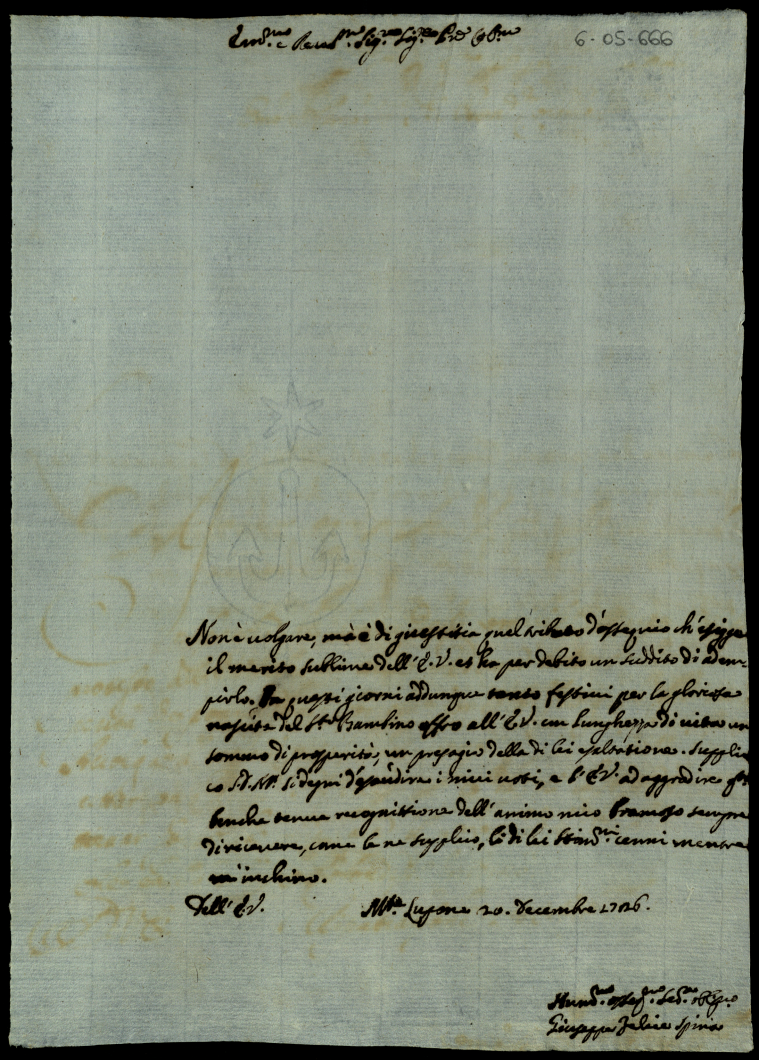 Em.mo e Rev.mo Sig.re Sig.re P.ro Col.mo
6-05-666
Non è volgare, mà è di giustitia quel tributo d'ossequio ch'esigge
il merito sublime dell'E.V. et hà per debito un suddito di adem-
pirlo. In questi giorni addunque tanto festivi per la gloriosa
nascita del S.to Bambino offro all'E.V. con lunghezza di vita un
sommo di prosperità, un presagio della di lei esaltatione. Suppli-
co S.D.M. si degni d'esaudire i miei voti, e l'E.V. ad aggradire
benche tenue recognitione dell'animo mio bramoso sempre
di ricevere, come la ne supplico, li di lei stim.mi cenni mentre
m'inchino.
Dell'E.V.
M.te Lupone 20. Decembre 1726.
Hum.mo Serv.re
Giuseppe Felice Spiria